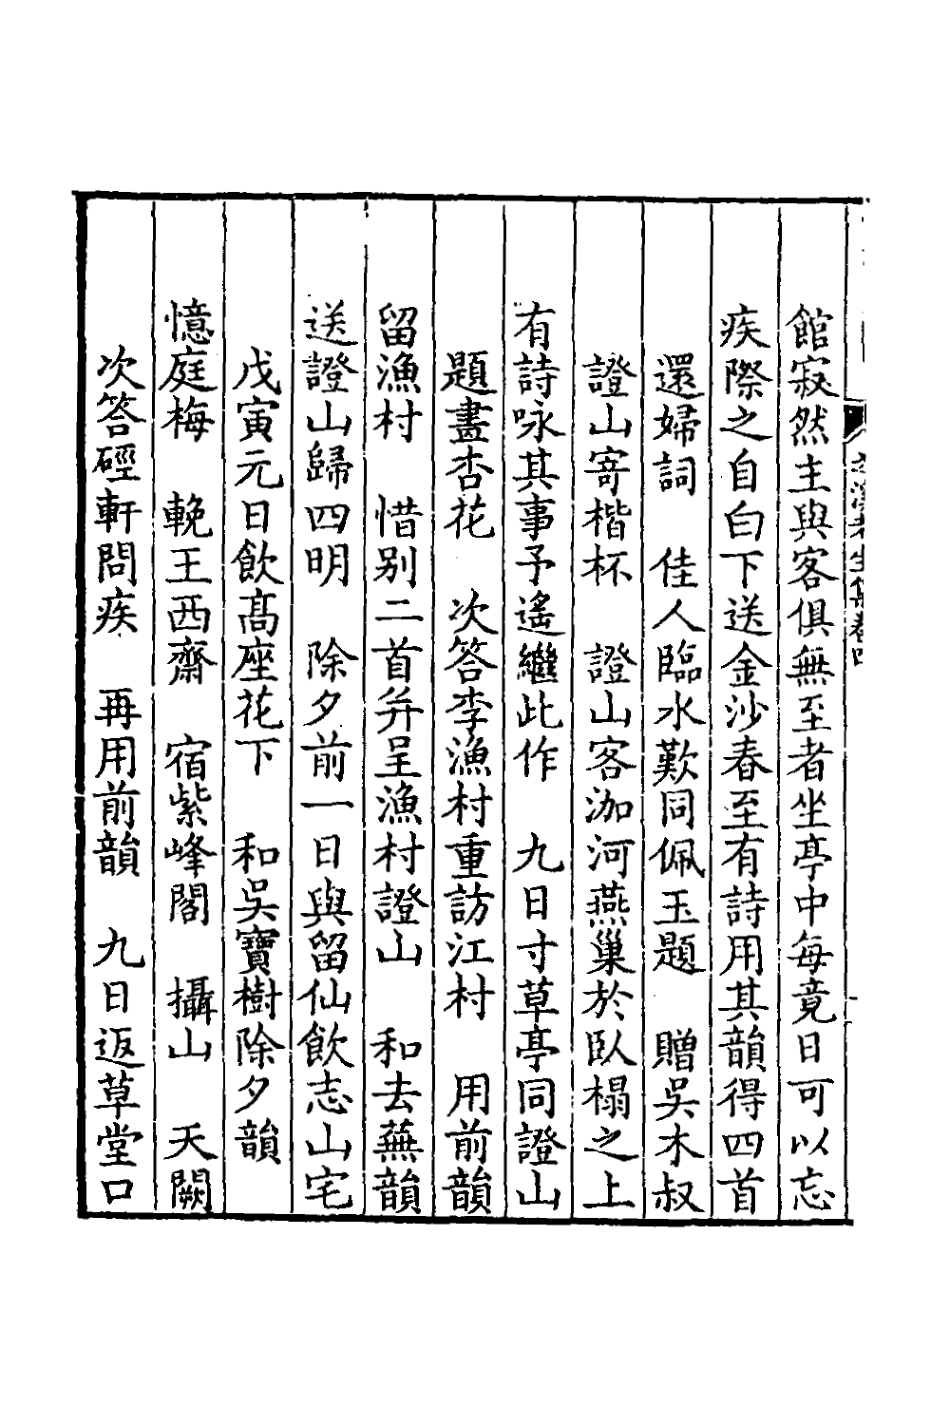 館寂然主與客俱無至者坐亭中每竟日可以忘
疾際之自白下送金沙春至有詩用其韻得四首
還婦詞　佳人臨水歎同佩玉題　贈吳木叔
證山寄楷杯　證山客泇河燕巢於臥榻之上
有詩咏其事予遙繼此作　九日寸草亭同證山
題畫杏花　次答李漁村重訪江村　用前韻
留漁村　惜别二首并呈漁村證山　和去蕪韻
送證山歸四明　除夕前一日與留仙飲志山宅
戊寅元日飲髙座花下　和吳寶樹除夕韻
憶庭梅　輓王西齋　宿紫峰閣　攝山　天闕
次答硜軒問疾　再用前韻　九日返草堂口